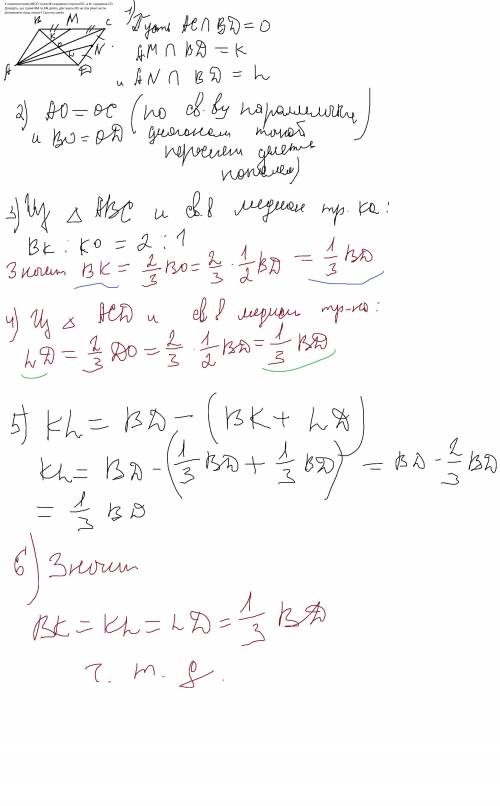 В параллелограмме ABCD точка M-середина стороны BC, а N- середина CD.
Докажите, что прямые AM и AN делят диагональ BD на три равные части.
B M C
N
A D
1) Пусть AC∩BD=O
AM∩BD=K
и AN∩BD=L
2) AO=OC (по св.ву параллелогр
и BO=OD диагонали точкой
пересеч делятся
пополам)
3) Из △ ABC и св.в медиан тр.ка:
BK : KO = 2 : 1
Значит BK = 2/3 BO = 2/3 · 1/2 BD = 1/3 BD
4) Из △ ACD и св в медиан тр-ка:
LD = 2/3 DO = 2/3 · 1/2 BD = 1/3 BD
5) KL = BD - (BK + LD)
KL = BD - (1/3 BD + 1/3 BD) = BD - 2/3 BD
= 1/3 BD
6) Значит
BK = KL = LD = 1/3 BD
ч. т. д.